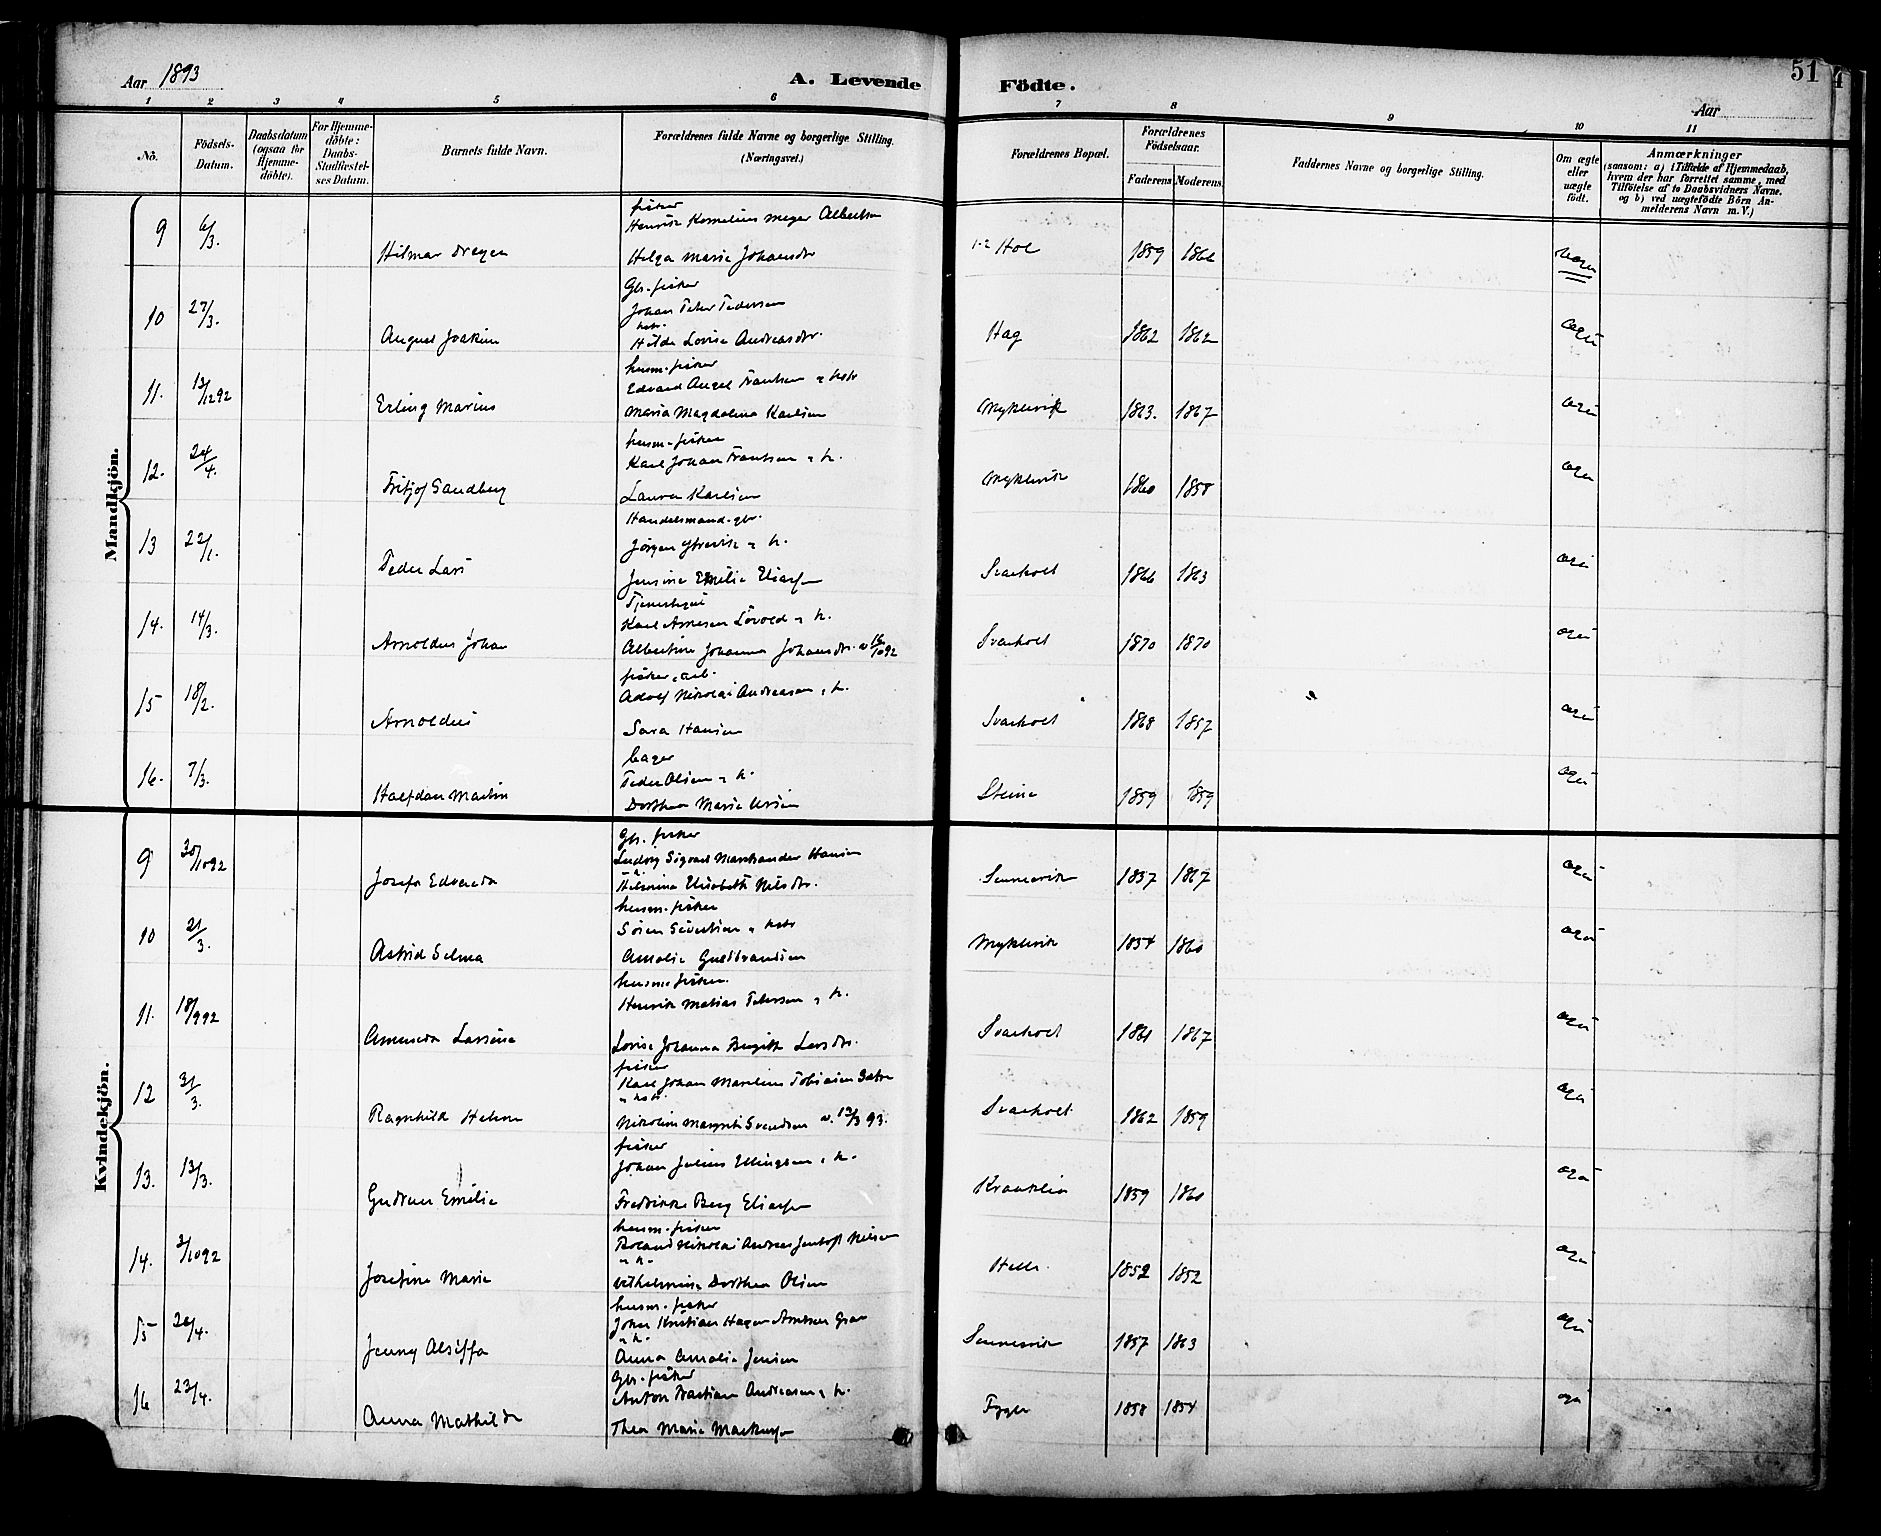 Aar 1893
A. Levende Födte.
51
Aar
1 2 3 4 5 6 7 8 9 10 11
No.
Födsels-Datum.
Daabsdatum (ogsaa for Hjemme-döbte).
For Hjemme-döbte: Daabs-Stadfæstel-ses Datum.
Barnets fulde Navn.
Forældrenes fulde Navne og borgerlige Stilling. (Næringsvei.)
Forældrenes Bopæl.
Forældrenes Födselsaar.
Faderens Moderens
Faddernes Navne og borgerlige Stilling.
Om ægte eller uægte födt.
Anmærkninger
(saasom: a) i Tilfælde af Hjemmedaab, hvem der har forrettet samme, med Tilföielse af to Daabsvidners Navne, og b) ved uægtefödte Börn An-melderens Navn m. V.)
Mandkjön.
fisker
9 6/3. Henrik Kornelius Meyer Albertsen
Hilmar Dreyer Helga Marie Johansdr 1-2 Hol 1859 1866 uægte
Gbr. fisker
10 27/3. Johan Peter Pedersen
August Joakim Hilda Lovise Andreasdr. Hag 1862 1862 ægte
husm. fisker
11. 13/12 92 Edvard Angel Frantsen og hstr
Erling Marius Maria Magdalena Karlsen Myklevik 1863. 1867 ægte
husm. fisker
12. 24/4. Karl Johan Frantsen og h.
Fritjof Sandberg Laura Karlsen Myklevik 1860 1858 ægte
Handelsmand. gbr.
13 22/1. Jörgen Ytrevik og h.
Peder Lars Jensine Emilie Eliass. Svarholt 1866 1863 ægte
14. 14/3. Karl Arnesen Lövold og h.
Arnoldus Johan Albertine Johanna Johansdr. 1870 1870 Svarholt ægte
15 18/2. Adolf Nikolai Andreasen og h.
Arnoldus Sara Hansen Svarholt 1868 1857 ægte
bager
16. 7/3. Peder Olsen og h.
Halfdan Martin Dorthea Marie Steine 1859 1859 ægte
Kvindekjön.
Gbr. fisker
9 30/10 92 Ludvig Sigvard Hansen
Josefa Edvarda Elisabeth Nilsdr. Sennesvik 1857 1867 ægte
husm. fisker
10 21/3. Sören Sivertsen og hstr
Astrid Selma Amalie Guldbrandsen Myklevik 1854 1860 ægte
husm. fisker
11. 18/9 92 Henrik Matias Petersen og h.
Lovise Johanna Birgitte Larsdr. Svarholt 1861 1867 ægte
fisker
12 31/3. Karl Johan Marelius Tobiasen
og hstr.
Ragnhild Helene Nikoline Margrete Svendsen v. 12/3 93. Svarholt 1862 1859 ægte
fisker
13. 13/3. Johan Julius Ellingsen og h.
Gudrun Emilie Fredrikke Berg Eliass. 1859 1860 ægte
husm. fisker
14. 3/10 92 Roland Nikolai Andreas Jentoft Nilsen
og h.
Josefine Marie Vilhelmine Dorthea Olsen Helle 1852 1852 ægte
husm. fisker
15 26/4. Johan Kristian Hagen
og h.
Jenny Anna Amalie Jensen Sennesvik 1857 1863 ægte
Gbr. fisker
16 23/4. Anton Andreasen og h.
Anna Mathilde Thea Marie Markuss. Fygle 1858 1854 ægte